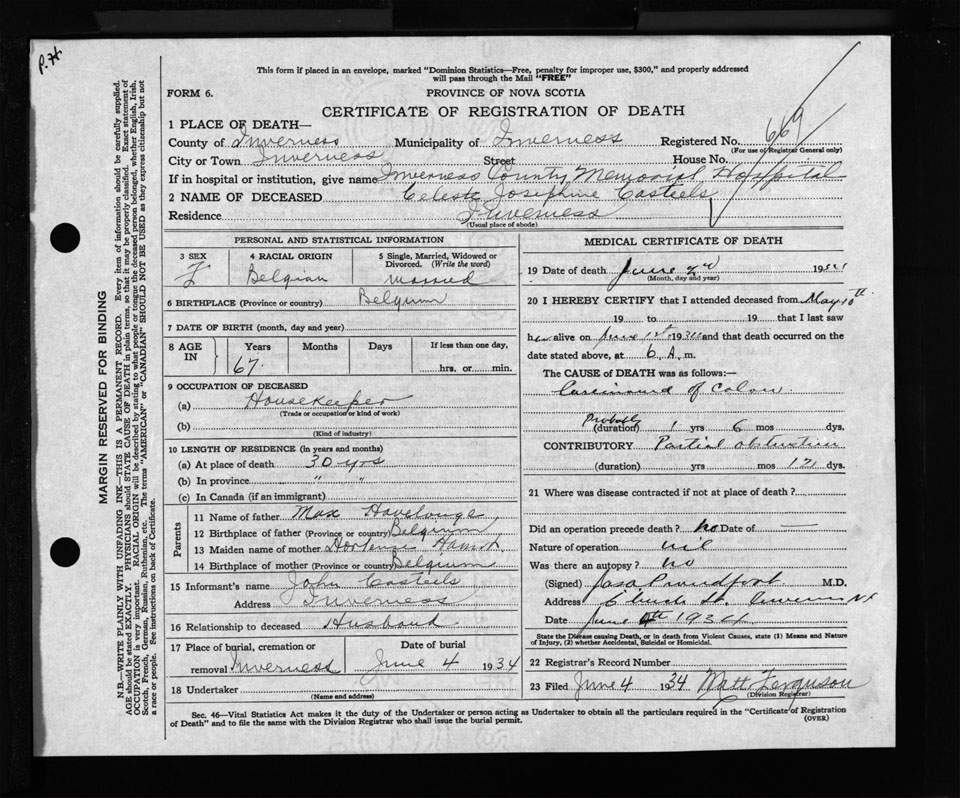 P.H
This form if placed in an envelope, marked "Dominion Statistics—Free, penalty for improper use, $300," and properly addressed
will pass through the Mail "FREE"
FORM 6.
PROVINCE OF NOVA SCOTIA
CERTIFICATE OF REGISTRATION OF DEATH
1 PLACE OF DEATH—
County of Inverness Municipality of Inverness Registered No. 669
(For use of Registrar General only)
City or Town Inverness Street House No.
If in hospital or institution, give name Inverness County Memorial Hospital
2 NAME OF DECEASED Celeste Josephine Casteels
Residence Inverness
(Usual place of abode)
PERSONAL AND STATISTICAL INFORMATION
3 SEX 4 RACIAL ORIGIN 5 Single, Married, Widowed or
Divorced. (Write the word)
F Belgian Married
6 BIRTHPLACE (Province or country) Belgium
7 DATE OF BIRTH (month, day and year)
8 AGE IN Years Months Days If less than one day,
67 hrs. or min.
9 OCCUPATION OF DECEASED
(a) Housekeeper
(Trade or occupation or kind of work)
(b)
(Kind of industry)
10 LENGTH OF RESIDENCE (in years and months)
(a) At place of death 30 yrs
(b) In province " "
(c) In Canada (if an immigrant)
Parents
11 Name of father Max
12 Birthplace of father (Province or country) Belgium
13 Maiden name of mother
14 Birthplace of mother (Province or country) Belgium
15 Informant's name John Casteels
Address Inverness
16 Relationship to deceased Husband
17 Place of burial, cremation or Date of burial
removal Inverness June 4 1934
18 Undertaker
(Name and address)
MEDICAL CERTIFICATE OF DEATH
19 Date of death June 2nd 19
(Month, day and year)
20 I HEREBY CERTIFY that I attended deceased from May 10th
19 to 19 that I last saw
her alive on June 1st 1934 and that death occurred on the
date stated above, at 6 A. m.
The CAUSE of DEATH was as follows:—
Carcinoma of Colon.
Probably
(duration) 1 yrs 6 mos dys.
CONTRIBUTORY Partial obstruction
(duration) yrs mos 12 dys.
21 Where was disease contracted if not at place of death?
Did an operation precede death? No Date of —
Nature of operation nil
Was there an autopsy? No
(Signed) Proudfoot M.D.
Address Church St. Inverness NS
Date June 4th 1934
State the Disease causing Death, or in death from Violent Causes, state (1) Means and Nature
of Injury, (2) whether Accidental, Suicidal or Homicidal.
22 Registrar's Record Number
23 Filed June 4 1934 Matt Ferguson
(Division Registrar)
Sec. 46—Vital Statistics Act makes it the duty of the Undertaker or person acting as Undertaker to obtain all the particulars required in the "Certificate of Registration
of Death" and to file the same with the Division Registrar who shall issue the burial permit.
(OVER)
MARGIN RESERVED FOR BINDING
N.B.—WRITE PLAINLY WITH UNFADING INK—THIS IS A PERMANENT RECORD. Every item of information should be carefully supplied.
AGE should be stated EXACTLY. PHYSICIANS should STATE CAUSE OF DEATH in plain terms, so that it may be properly classified. Exact statement of
OCCUPATION is very important. RACIAL ORIGIN will be described by stating to what people or tongue the deceased person belonged, whether English, Irish,
Scotch, French, German, Russian, Ruthenian, etc. The terms "AMERICAN" or "CANADIAN" SHOULD NOT BE USED as they express citizenship but not
a race or people. See instructions on back of Certificate.